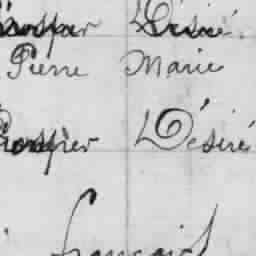 Prosper Désiré.
Pierre Marie
Prosper Désiré
François